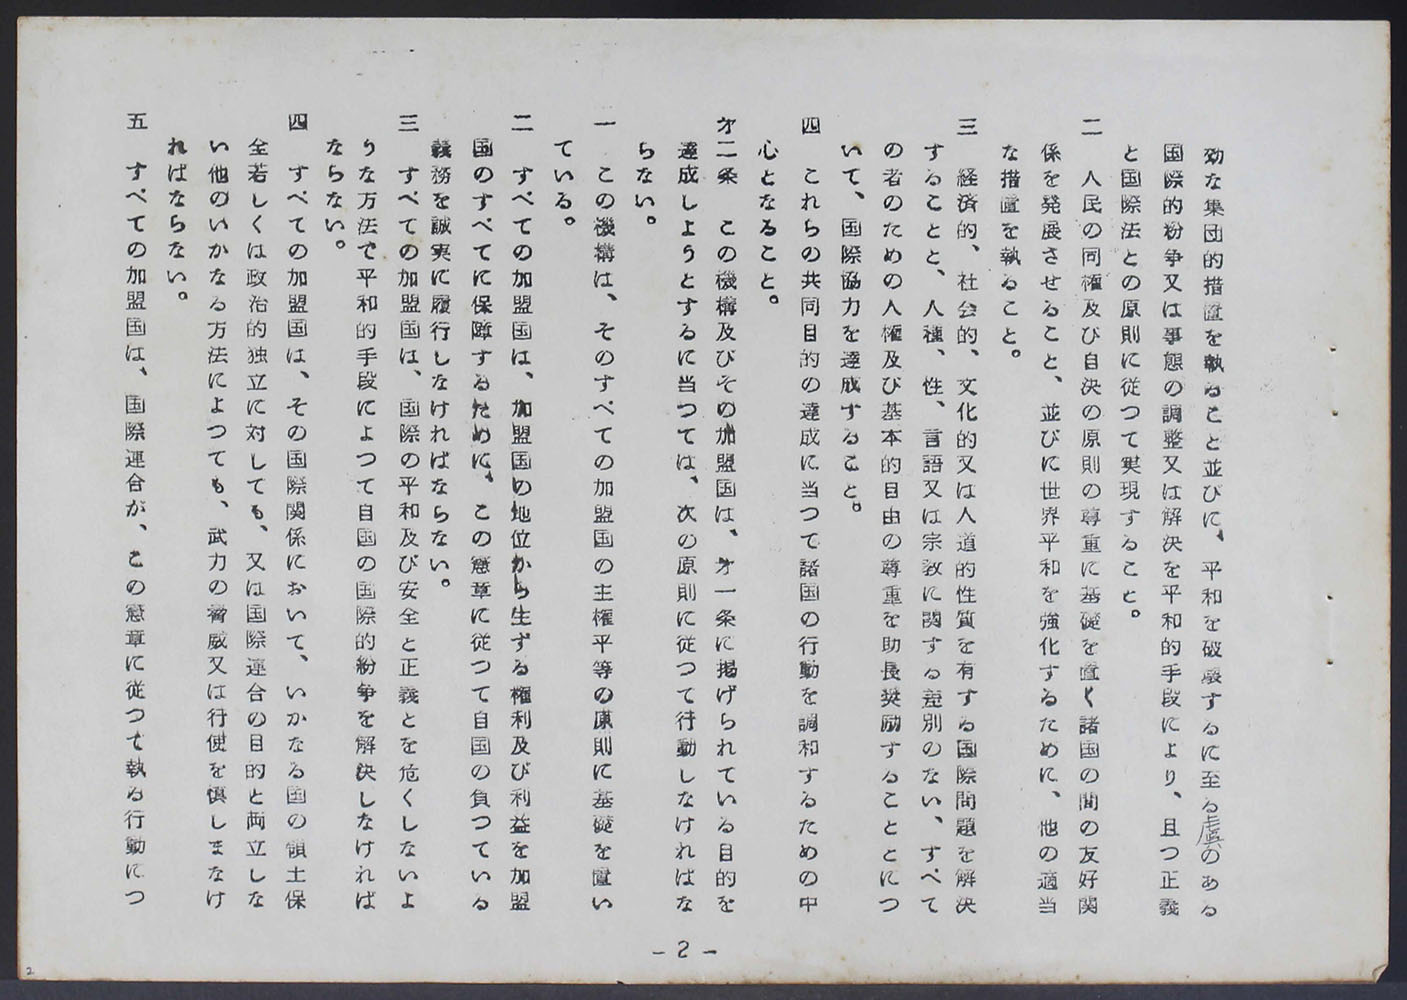 効な集団的措置を執ること並びに、平和を破壊するに至る虞のある
国際的紛争又は事態の調整又は解決を平和的手段により、且つ正義
と国際法との原則に従つて実現すること。
二　人民の同権及び自決の原則の尊重に基礎を置く諸国の間の友好関
係を発展させること、並びに世界平和を強化するために、他の適当
な措置を執ること。
三　経済的、社会的、文化的又は人道的性質を有する国際問題を解決
することと、人種、性、言語又は宗教に関する差別のない、すべて
の者のための人権及び基本的自由の尊重を助長奨励することとにつ
いて、国際協力を達成すること。
四　これらの共同目的の達成に当つて諸国の行動を調和するための中
心となること。
才二条　この機構及びその加盟国は、才一条に掲げられている目的を
達成しようとするに当つては、次の原則に従つて行動しなければな
らない。
一　この機構は、そのすべての加盟国の主権平等の原則に基礎を置い
ている。
二　すべての加盟国は、加盟国の地位から生ずる権利及び利益を加盟
国のすべてに保障するために、この憲章に従つて自国の負つている
義務を誠実に履行しなければならない。
三　すべての加盟国は、国際の平和及び安全と正義とを危くしないよ
りな方法で平和的手段によつて自国の国際的紛争を解決しなければ
ならない。
四　すべての加盟国は、その国際関係において、いかなる国の領土保
全若しくは政治的独立に対しても、又は国際連合の目的と両立しな
い他のいかなる方法によつても、武力の脅威又は行使を慎しまなけ
ればならない。
五　すべての加盟国は、国際連合が、この憲章に従つて執る行動につ
-2-
2